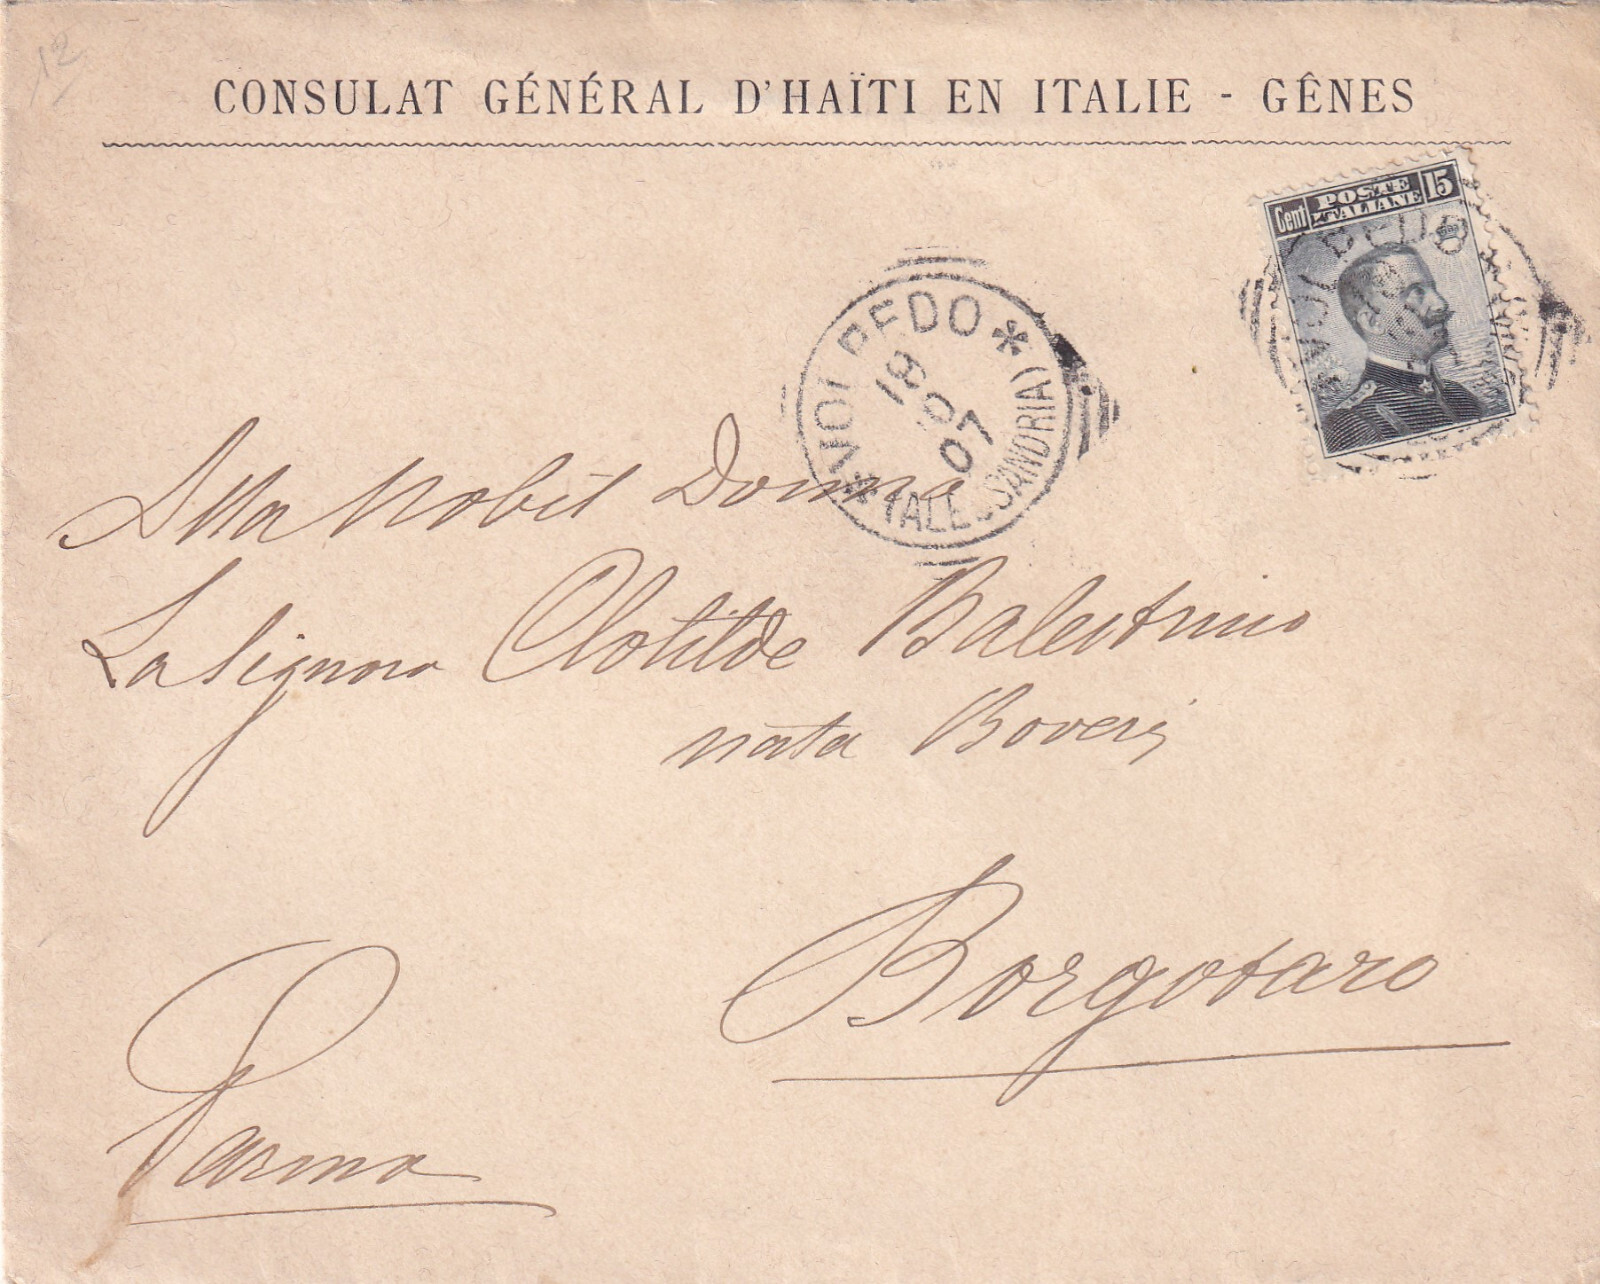 12
CONSULAT GÉNÉRAL D'HAÏTI EN ITALIE - GÊNES
Cent POSTE ITALIANE 15
VOLPEDO
VOLPEDO
(ALESSANDRIA)
18 07
Alla Nobil Donna
La Signora Clotilde Balestrino
nata Boveri
Borgotaro
Parma